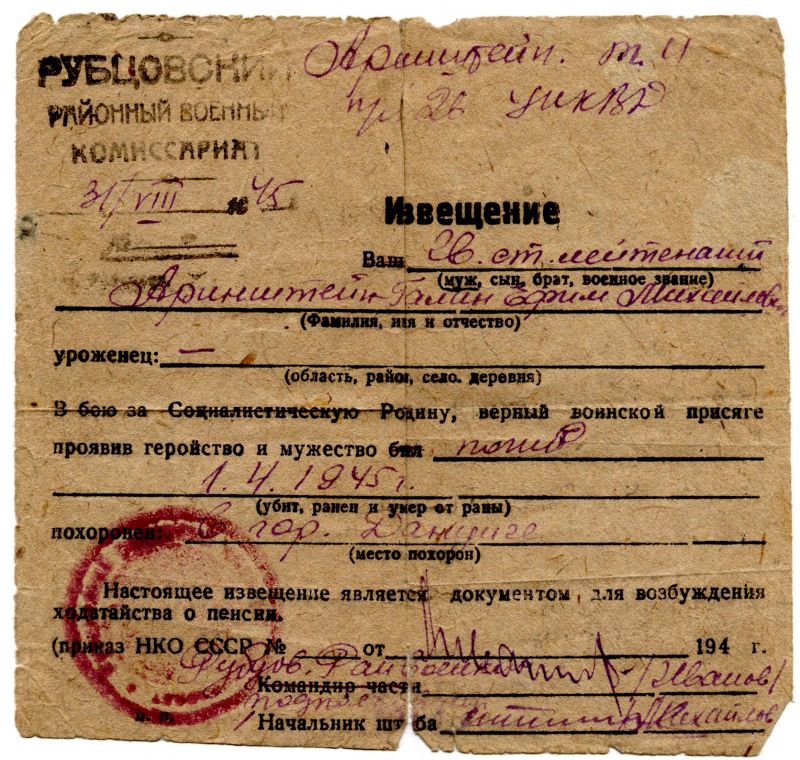 РУБЦОВСКИЙ
РАЙОННЫЙ ВОЕННЫЙ
КОМИССАРИАТ
31/VIII 1945
Аринштейн. т. 11
пр 26 УНКВД
Извещение
Ваш гв. ст. лейтенант
(муж, сын, брат, военное звание)
Аринштейн Галин Ефим Михайлович
(Фамилия, имя и отчество)
уроженец: —
(область, район, село. деревня)
В бою за Социалистическую Родину, верный воинской присяге
проявив геройство и мужество был погиб
1. 4. 1945 г.
(убит, ранен и умер от раны)
похоронен: В гор. Данциге
(место похорон)
Настоящее извещение является документом для возбуждения
ходатайства о пенсии.
(приказ НКО СССР № от 194 г.
Рубцов Райвоенком
Командир части /Иванов/
Начальник штаба Михайлов
м. п.